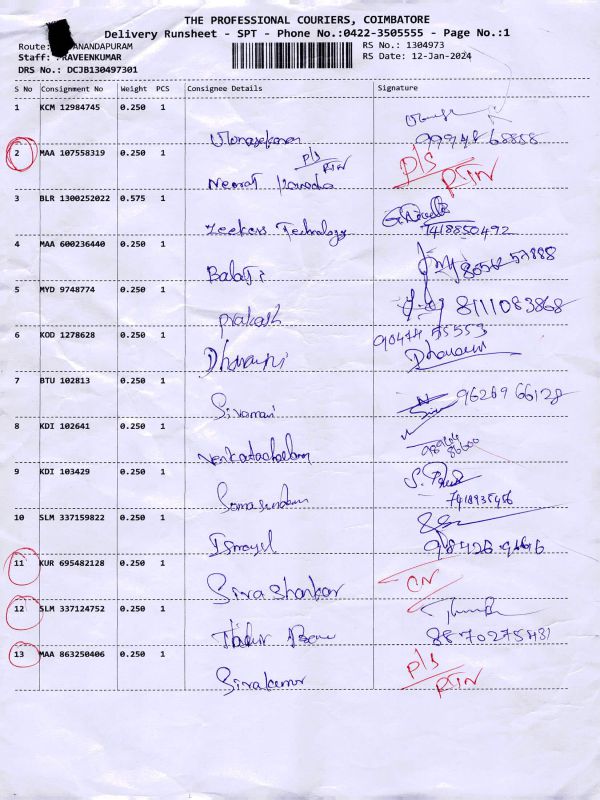 THE PROFESSIONAL COURIERS, COIMBATORE
Delivery Runsheet - SPT - Phone No.:0422-3505555 - Page No.:1
Route: ANANDAPURAM RS No.: 1304973
Staff: PRAVEENKUMAR RS Date: 12-Jan-2024
DRS No.: DCJB130497301
S No Consignment No Weight PCS Consignee Details Signature
1 KCM 12984745 0.250 1
99948 68888
2 MAA 107558319 0.250 1 P/S RTN P/S RTN
3 BLR 1300252022 0.575 1
Zeekers Technology 7418850492
4 MAA 600236440 0.250 1
Balaji
5 MYD 9748774 0.250 1 8111083868
Prakash
6 KOD 1278628 0.250 1
Dharani
7 BTU 102813 0.250 1 96269 66128
Sivamani
8 KDI 102641 0.250 1
Venkatachalam
9 KDI 103429 0.250 1
Somasundaram
10 SLM 337159822 0.250 1
Ismayil
11 KUR 695482128 0.250 1
Sivashankar
12 SLM 337124752 0.250 1
13 MAA 863250406 0.250 1 P/S
Sivakumar RTN